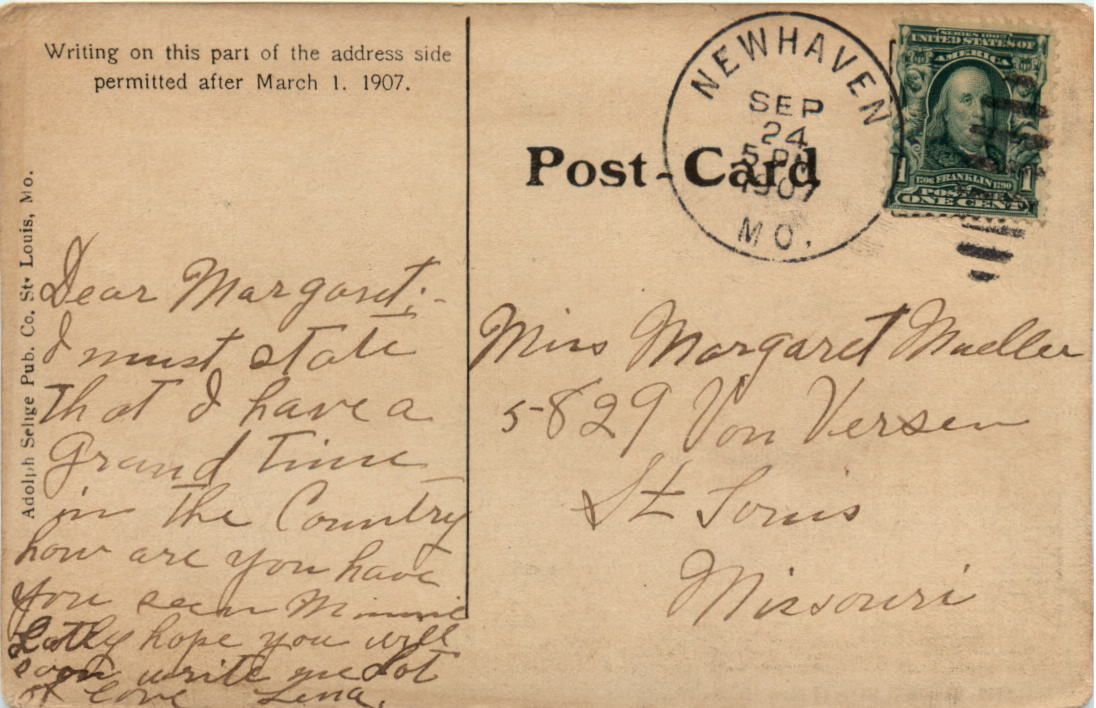 Writing on this part of the address side
permitted after March 1. 1907.
Adolph Selige Pub. Co. St. Louis, Mo.
Post-Card
NEWHAVEN
SEP
24
5 PM
1907
MO.
SERIES 1902
UNITED STATES OF
AMERICA
1706 FRANKLIN 1790
1 POSTAGE 1
ONE CENT
Dear Margaret;-
I must state
that I have a
Grand Time
in the Country
how are you have
you seen Minnie
Lately hope you will
soon write me Lot
of love Lena.
Miss Margaret Mueller
5829 Von Versen
St Louis
Missouri